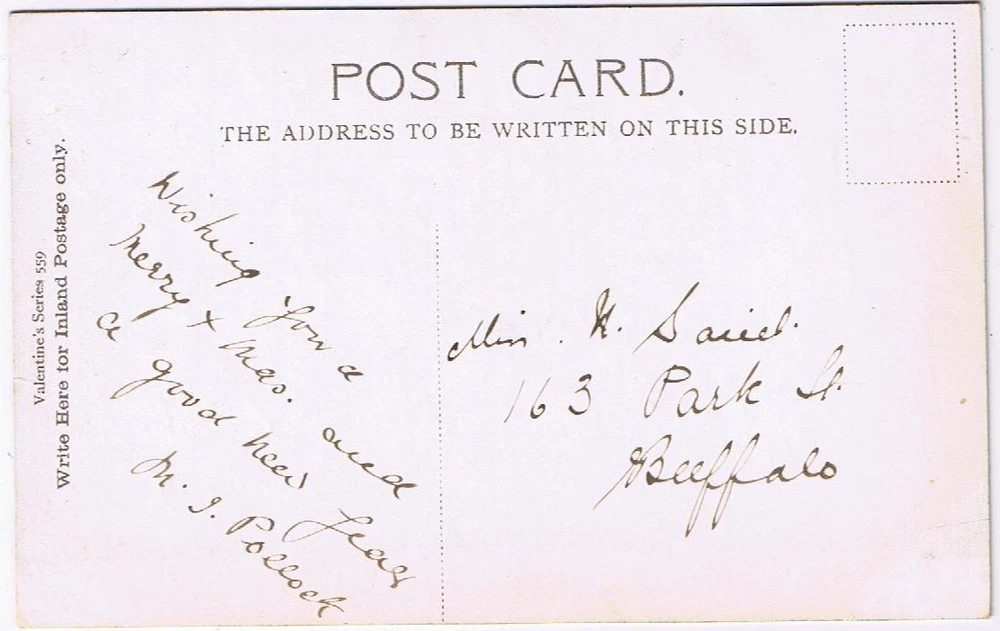 POST CARD.
THE ADDRESS TO BE WRITTEN ON THIS SIDE.
Valentine's Series 559
Write Here for Inland Postage only.
Wishing you a
Merry Xmas. and
a good New Year
M. J. Pollock
Miss .
163 Park St.
Buffalo